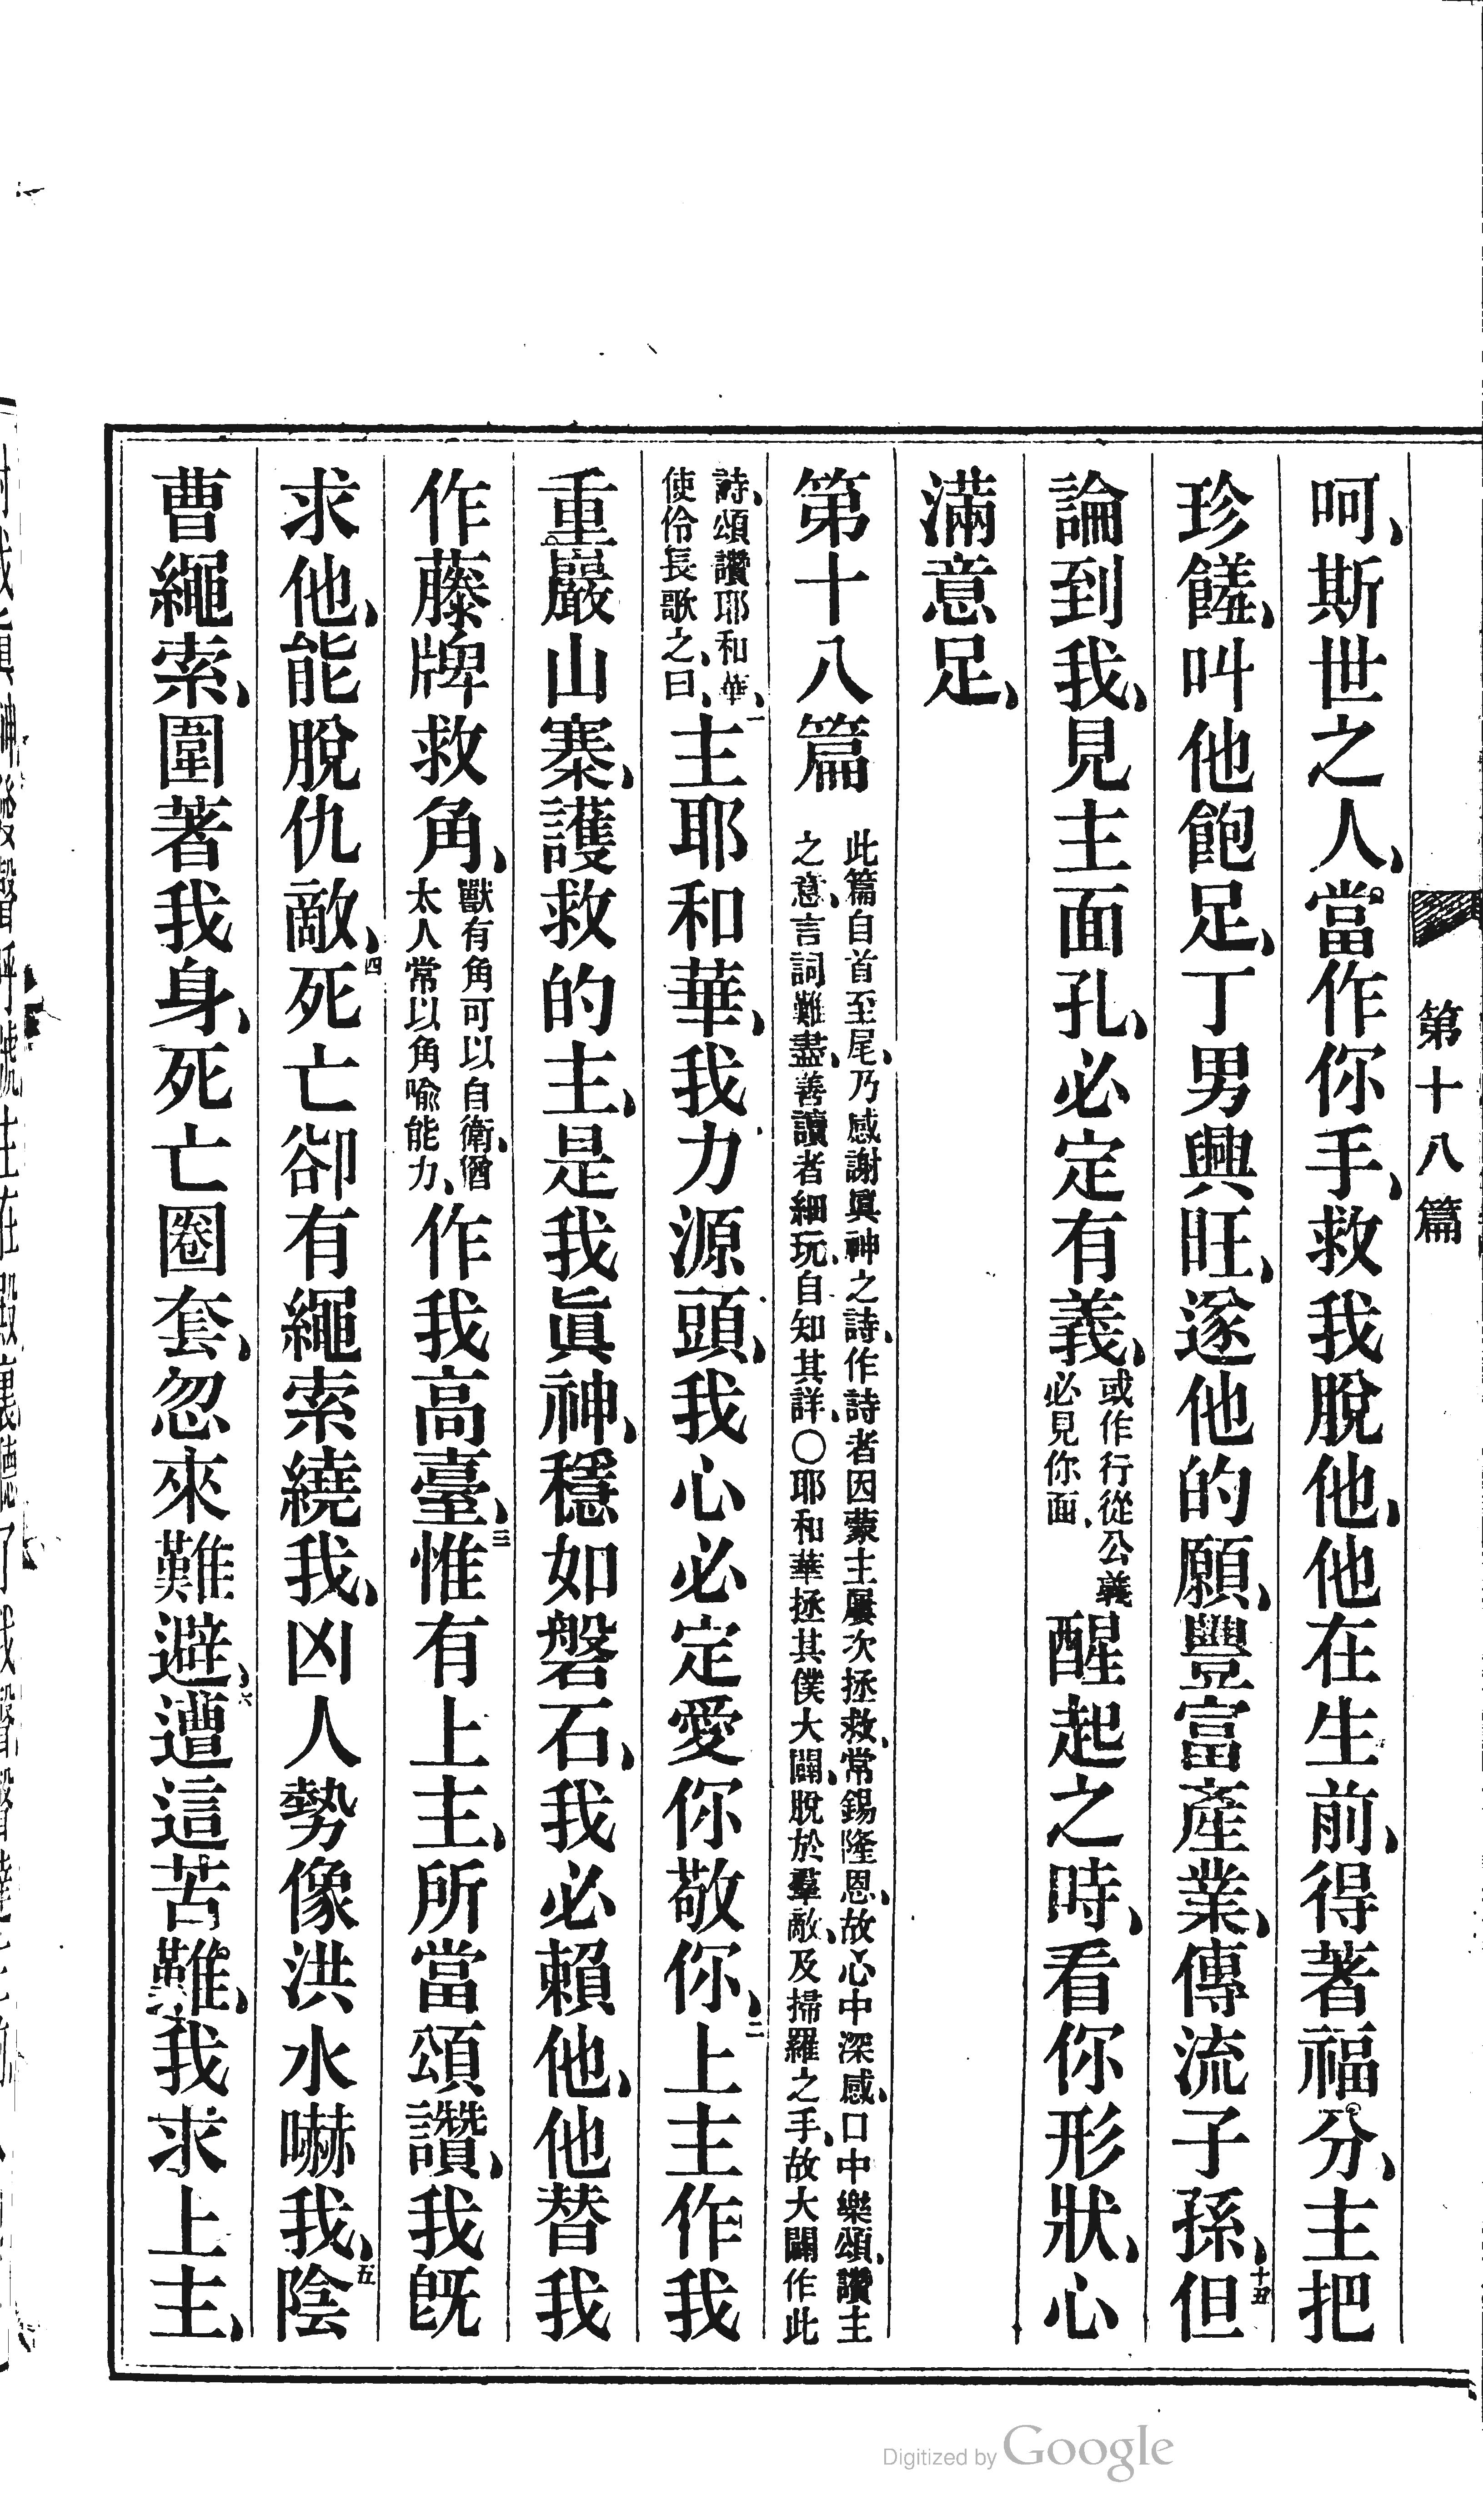 第十八篇
呵、斯世之人、當作你手、救我脫他、他在生前、得著福分、主把
珍饈、叫他飽足、丁男興旺、遂他的願、豐富產業、傳流子孫、十五但
論到我、見主面孔、必定有義、或作行從公義必見你面、醒起之時、看你形狀、心
滿意足、
第十八篇 此篇自首至尾、乃感謝眞神之詩、作詩者因蒙主屢次拯救、常錫隆恩、故心中深感、口中樂頌、讚主
之意、言詞難盡、善讀者細玩、自知其詳、〇耶和華拯其僕大闢、脫於羣敵、及掃羅之手、故大闢作此
詩、頌讚耶和華、使伶長歌之、曰、一主耶和華、我力源頭、我心必定愛你敬你、二上主作我
重巖山寨、護救的主、是我眞神、穩如磐石、我必賴他、他替我
作藤牌救角、獸有角可以自衛、猶太人常以角喻能力、作我高臺、三惟有上主、所當頌讚、我旣
求他、能脫仇敵、四死亡卻有繩索繞我、凶人勢像洪水嚇我、五陰
曹繩索、圍著我身、死亡圈套、忽來難避、六遭這苦難、我求上主、
Digitized by Google